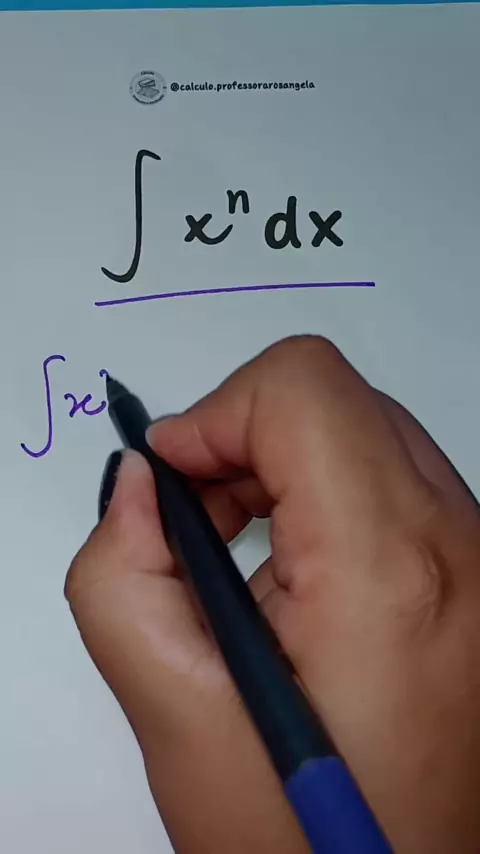 @calculo.professorarosangela
∫ xⁿ dx
∫x